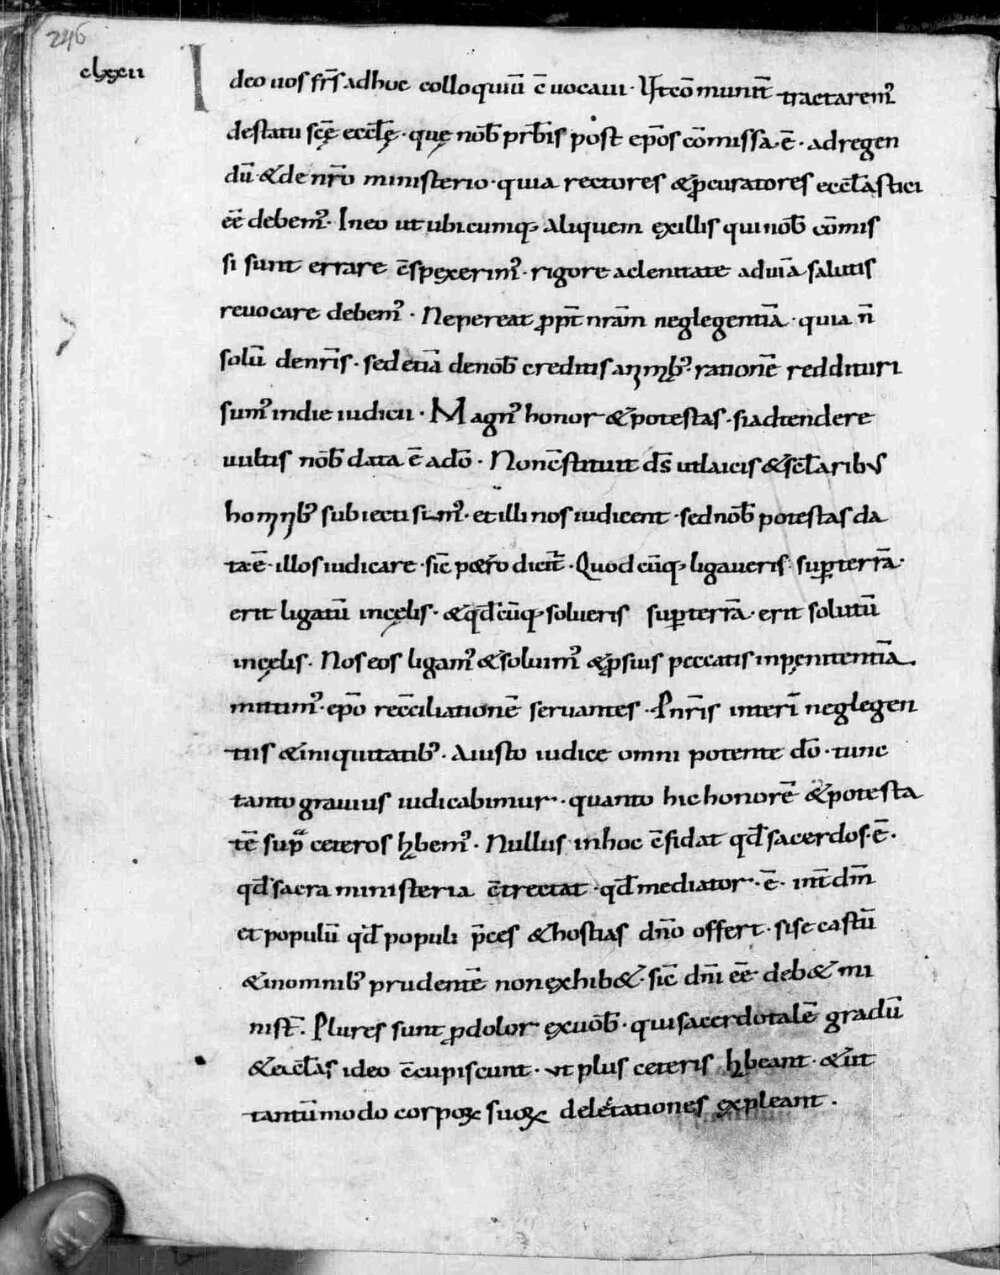 246
clxxii
Ideo uos fr̄s adhuc colloquiū c̄uocaui · Ut cōmunit̄ tractarem᷒
destatu scę̄ eccl̄ę · quę nob̄ prb̄is post ep̄os cōmissa · ē · adregen
dū · & de nr̄o ministerio · quia rectores & ꝓcuratores eccl̄astici
ēē debem᷒ · In eo ut ubicumq; aliquem exillis qui nob̄ cōmis
si sunt errare c̄spexerim᷒ · rigore ac lenitate aduiā salutis
reuocare debem᷒ · Nepereat ꝓpt̄ nrām neglegentiā · quia n̄
solū denr̄is · sed etiā denob̄ creditis animab᷒ · rationē reddituri
sum᷒ indie iudicii · Magn᷒ honor & potestas · si adtendere
uultis nob̄ data ē ado̅ · Non c̄stituit ds̄ ut laicis & sc̄laribus
hominib᷒ subiecti sim᷒ · et illi nos iudicent · sed nob̄ potestas da
ta · ē · illos iudicare · sic̄ petro dicit̄ · Quodcūq; ligaueris · sup̄ terrā ·
erit ligatū incęlis · & qd̄cūq; solueris sup̄ terrā · erit solutū
incęlis · Nos eos ligam᷒ & soluim᷒ & ꝓ suis peccatis inpenitentiā ·
mittim᷒ · ep̄o rec̄ciliationē seruantes · Pnr̄is interī neglegen
tiis & iniquitatib᷒ · A iusto iudice omnipotente do̅ · tunc
tanto grauius iudicabimur · quanto hic honorē & potesta
tē sup̄ ceteros hbem᷒ · Nullus inhoc c̄fidat qd̄ sacerdos · ē ·
qd̄ sacra ministeria c̄trectat · qd̄ mediator · ē · int̄ dm̄
et populū qd̄ populi p̄ces & hostias dn̄o offert · si se castū
& inomnib᷒ prudentē non exhib& · sic̄ dn̄i ēē deb& mi
nist̄ · Plures sunt ꝓdolor exuob̄ · qui sacerdotalē gradū
& eccl̄as ideo c̄cupiscunt · ut plus ceteris hbeant · & ut
tantūmodo corpoꝝ suoꝝ delectationes expleant ·